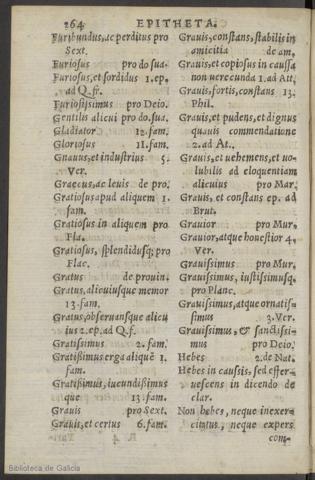 264 EPITHETA.
Furibundus, ac perditus pro
Sext.
Furiosus pro do sua.
Furiosus, et sordidus 1. ep.
ad Q. fr.
Furiosissimus pro Deio.
Gentilis alicui pro do. sua.
Gladiator 12. fam.
Gloriosus 11. fam.
Gnauus, et industrius 5.
Ver.
Graecus, ac leuis de pro.
Gratiosus apud aliquem 1.
fam.
Gratiosus in aliquem pro
Pla.
Gratiosus, splendidusq; pro
Flac.
Gratus de prouin.
Gratus, alicuiusque memor
13. fam.
Gratus, obseruansque alicu
ius 2. ep. ad Q. f.
Gratissimus 2. fam.
Gratissimus erga aliquē 1.
fam.
Gratissimus, iucundissimus
que 13. fam.
Grauis pro Sext.
Grauis, et certus 6. fam.
Grauis, constans, stabilis in
amicitia de am.
Grauis, et copiosus in caussa
non uerecunda 1. ad Att.
Grauis, fortis, constans 13.
Phil.
Grauis, et pudens, et dignus
quauis commendatione
2. ad At.
Grauis, et uehemens, et uo-
lubilis ad eloquentiam
alicuius pro Mar.
Grauis, et constans ep. ad
Brut.
Grauior pro Mur.
Grauior, atque honestior 4.
Ver.
Grauissimus pro Mur.
Grauissimus, iustissimusq.
pro Planc.
Grauissimus, atque ornatis-
simus 3. Ver.
Grauissimus, & sanctissi-
mus pro Deio.
Hebes 2. de Nat.
Hebes in caussis, sed effer-
uescens in dicendo de
clar.
Non hebes, neque inexer-
citatus, neque expers
com-
Biblioteca de Galicia